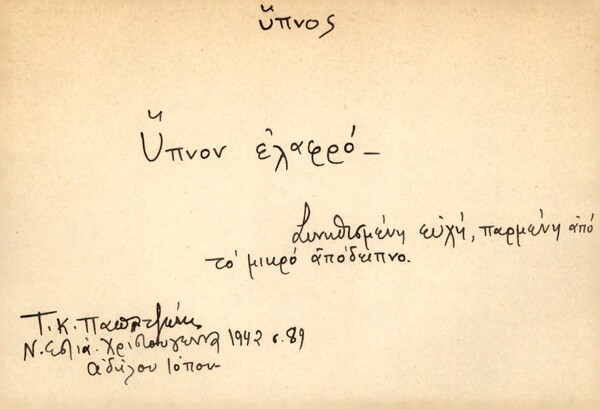 ὕπνος
Ὕπνον ἐλαφρό –
Συνηθισμένη εὐχή, παρμένη ἀπό
τό μικρό ἀπόδειπνο.
Τ. Κ. Παπατζώνης
Ν. Ἑστία. Χριστούγεννα 1942 σ. 89
ἀδήλου τόπου